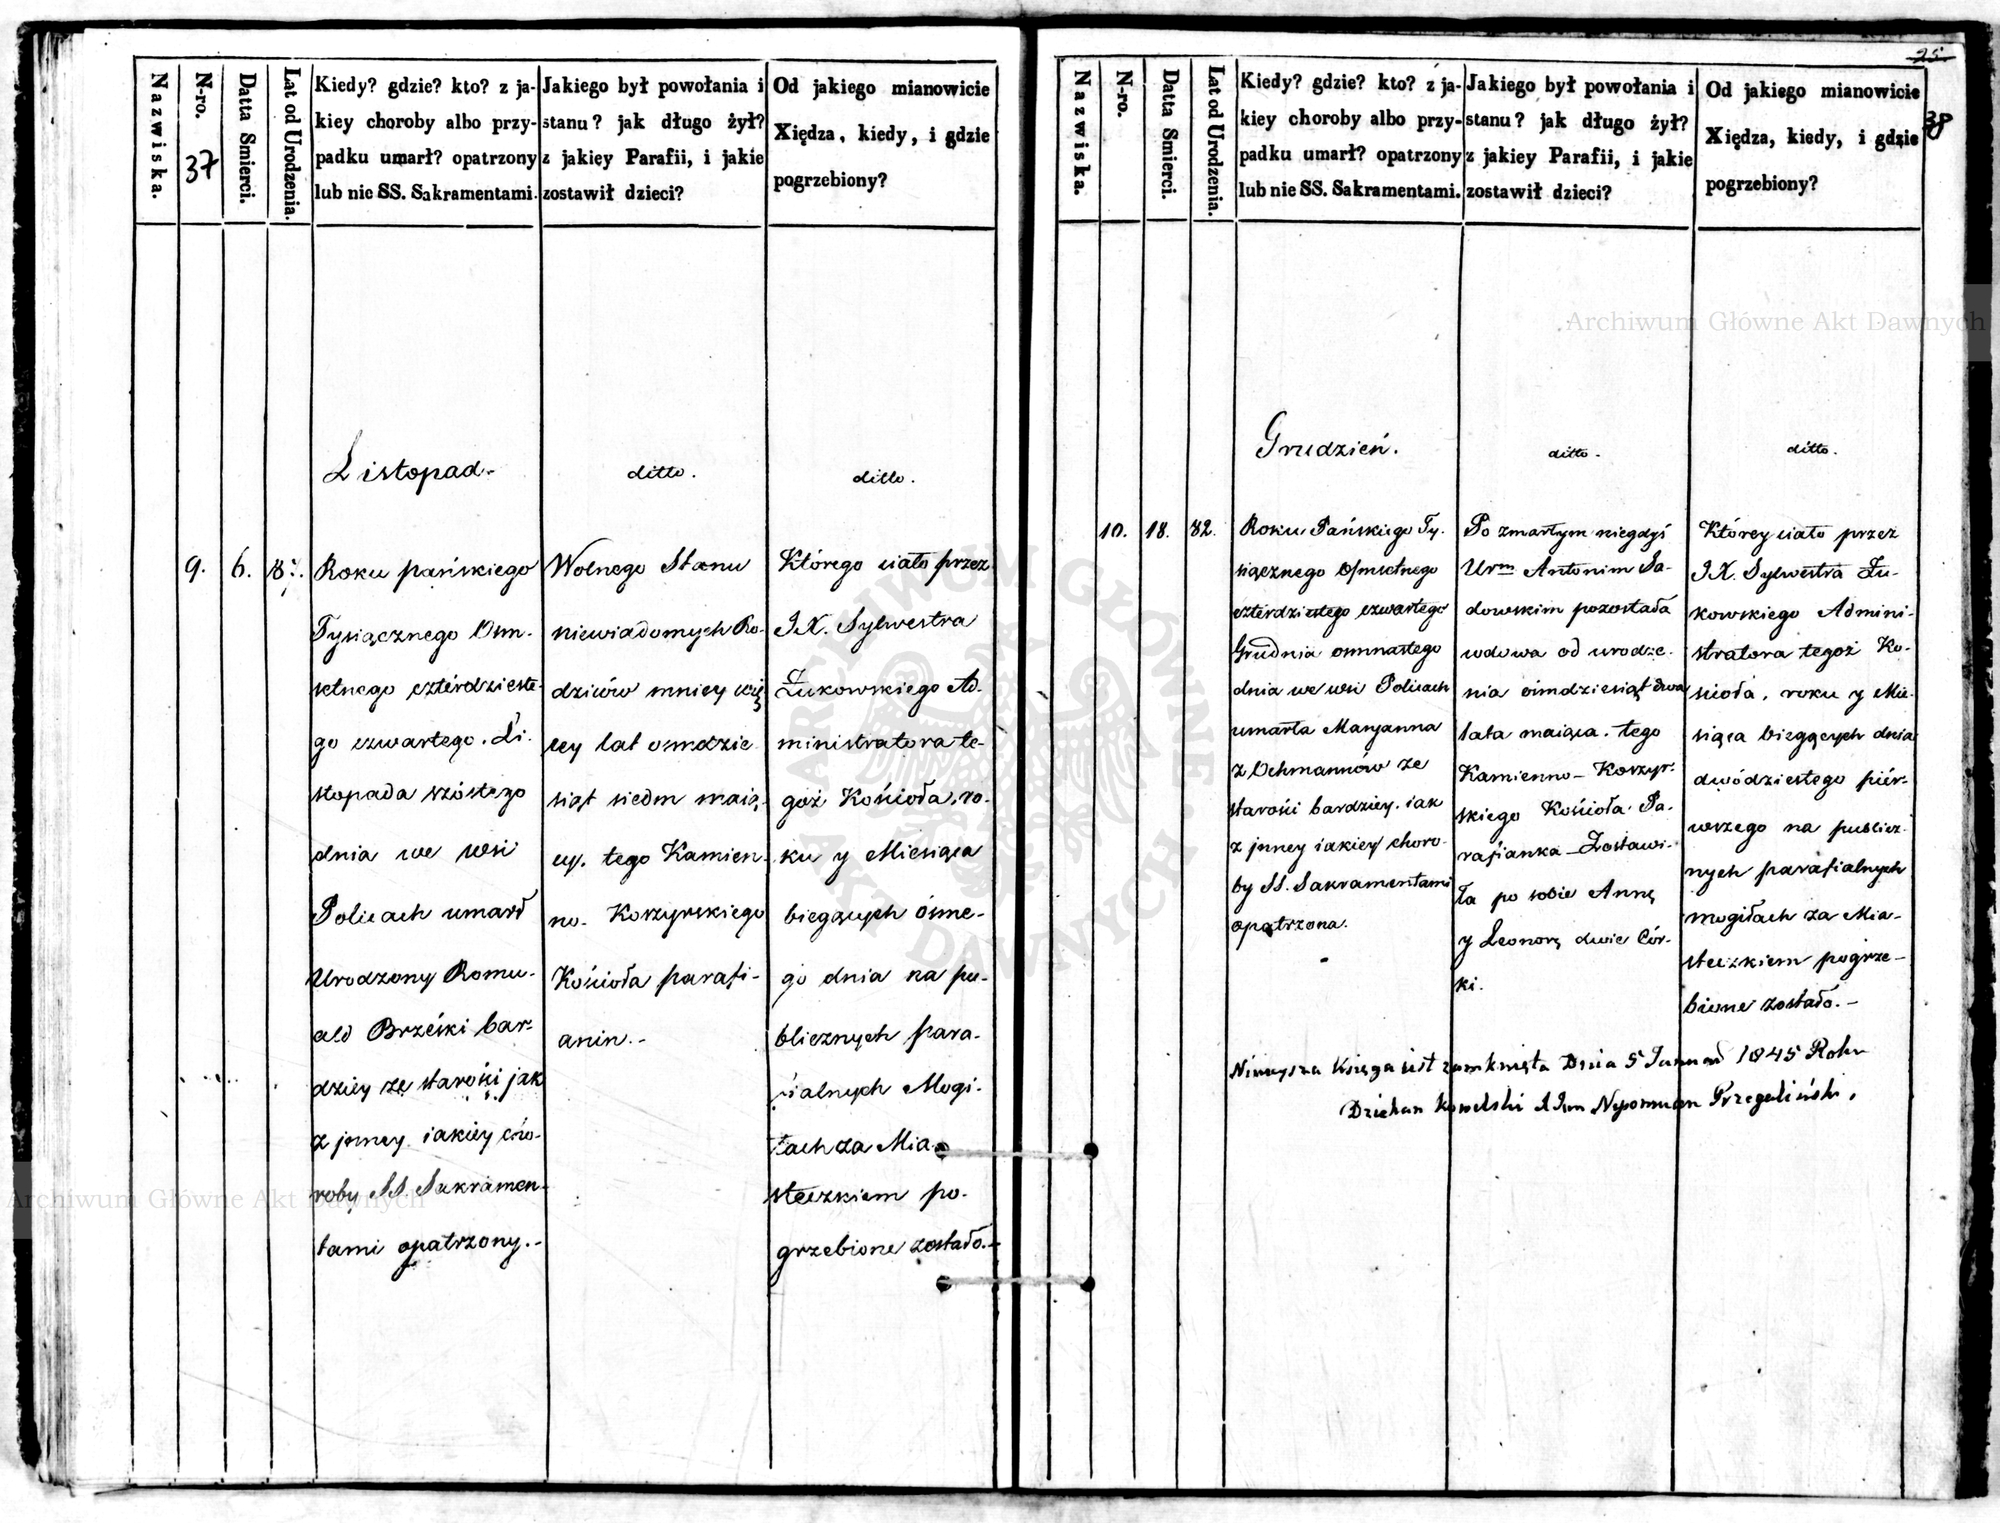 25
38
Nazwiska.
N-ro.
37
Datta Smierci.
Lat od Urodzenia.
Kiedy? gdzie? kto? z ja-
kiey choroby albo przy-
padku umarł? opatrzony
lub nie SS. Sakramentami.
Jakiego był powołania i
stanu? jak długo żył?
z jakiey Parafii, i jakie
zostawił dzieci?
Od jakiego mianowicie
Xiędza, kiedy, i gdzie
pogrzebiony?
Listopad.
ditto.
ditto.
9.
6.
87.
Roku pańskiego
Tysiącznego Osm-
setnego czterdzieste-
go czwartego. Li-
stopada szóstego
dnia we wsi
Policach umarł
Urodzony Romu-
ald Brzéski bar-
dziey ze starości jak
z jnney iakiey cho-
roby SS Sakramen-
tami opatrzony.-
Wolnego Stanu
niewiadomych Ro-
dziców mniey wię
cey lat osmdzie
siąt siedm maią-
cy. tego Kamien-
no- Korzyrskiego
Kościoła parafi-
anin.-
Którego ciało przez
JX. Sylwestra
Żukowskiego Ad-
ministratora te-
goż Kościoła, ro-
ku y Miesiąca
bieżących ósme-
go dnia na pu-
blicznych para-
fialnych Mogi-
łach za Mia-
steczkiem po-
grzebione zostało.-
Nazwiska.
N-ro.
Datta Smierci.
Lat od Urodzenia.
Kiedy? gdzie? kto? z ja-
kiey choroby albo przy-
padku umarł? opatrzony
lub nie SS. Sakramentami.
Jakiego był powołania i
stanu? jak długo żył?
z jakiey Parafii, i jakie
zostawił dzieci?
Od jakiego mianowicie
Xiędza, kiedy, i gdzie
pogrzebiony?
Grudzień.
ditto.
ditto.
10.
18.
82.
Roku Pańskiego Ty-
siącznego Osmsetnego
czterdziestego czwartego
Grudnia osmnastego
dnia we wsi Policach
umarła Maryanna
z Ochmannów ze
starości bardziey. iak
z jnney iakiey choro-
by SS. Sakramentami
opatrzona.
Po zmarłym niegdyś
Urm Antonim Sa-
dowskim pozostała
wdowa od urodze-
nia ośmdziesiąt dwa
lata maiąca. tego
Kamienno- Korzyr-
skiego Kościoła Pa-
rafianka - Zostawi-
ła po sobie Annę
y Leonorę dwie Cór-
ki.
Którey ciało przez
JX. Sylwestra Żu-
kowskiego Admini-
stratora tegoż Ko-
ścioła, roku y Mie-
siąca bieżących dnia
dwódziestego piér-
wszego na publicz-
nych parafialnych
mogiłach za Mia-
steczkiem pogrze-
bione zostało.-
Ninieysza Księga iest zamknięta Dnia 5 Januarii 1845 Roku
Dziekan Kowelski X Jan Nepomucen Przegaliński.
Archiwum Główne Akt Dawnych
Archiwum Główne Akt Dawnych
ARCHIWUM GŁÓWNE AKT DAWNYCH